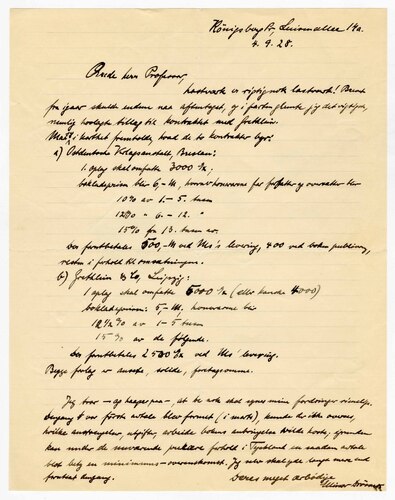 Königsberg Pr, Luisenallee 14a.
4.9.28.
Ærede herr Professor,
hastverk er rigtignok lastverk! Brevet
fra jeg skulde endnu naa aftentoget, og i farten glemte jeg det vigtigste,
nemlig vedlagte tillæg til kontrakt med Grethlein.
i korthet fremholde, hvad de to kontrakter byr:
a) Ostdeutsche Verlagsanstalt, Breslau:
1 oplag skal omfatte 3000 Ex.;
bokladeprisen blir 6,- M, honorar for forfatter og oversætter blir
10% av 1.-5. tusen
12½% " 6.-12. "
15% fra 13. tusen av.
Der forutbetales 500,- M ved Ms's levering, 400 ved bokens publicering,
resten i forhold til omsætningen.
b) Grethlein & Co, Leipzig:
1 oplag skal omfatte 5000 Ex (eller kanske 4000)
bokladeprisen: 5,- M. honorarene blir
12½% av 1-5 tusen
15% av de følgende.
Der forutbetales 2500 M ved Ms' levering.
Begge forlag er ansete, solide, foretagsomme.
Jeg tror — og haaper paa — at De nok skal synes mine fordringer rimelige.
Dengang vor første avtale blev formet (i marts), kunde der ikke overses,
hvilke anstrengelser, utgifter, arbeide bokens antagelse vilde koste,
kan under de nuværende prekære forhold i Tyskland en saadan avtale
blot bety en minimums-overenskomst.
Deres meget ærbødige